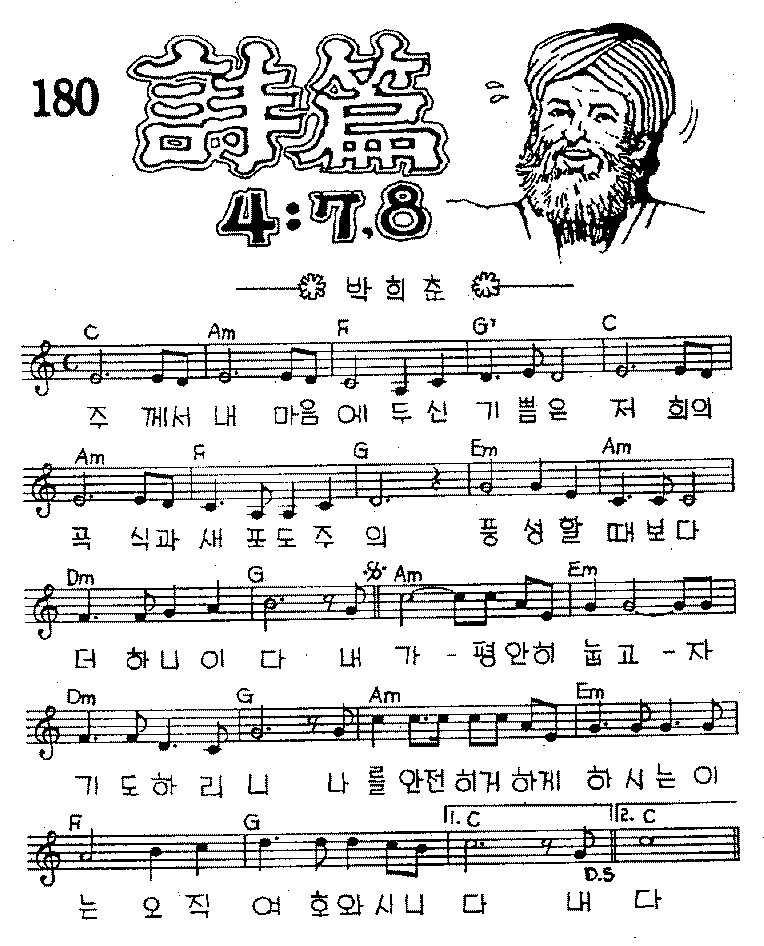 180
詩篇
4:7,8
박희춘
C Am F G7 C
주 께서 내 마음 에 두 신 기 쁨은 저 희의
Am F G Em Am
곡 식과 새 포도 주 의 풍 성할 때보다
Dm G Am Em
더 하니이 다 내 가 - 평안히 눕고 - 자
Dm G Am Em
기 도하 리 니 나 를 안전 히거 하게 하 시 는 이
F G 1. C 2. C
D.S
는 오 직 여 호와시니 다 내 다